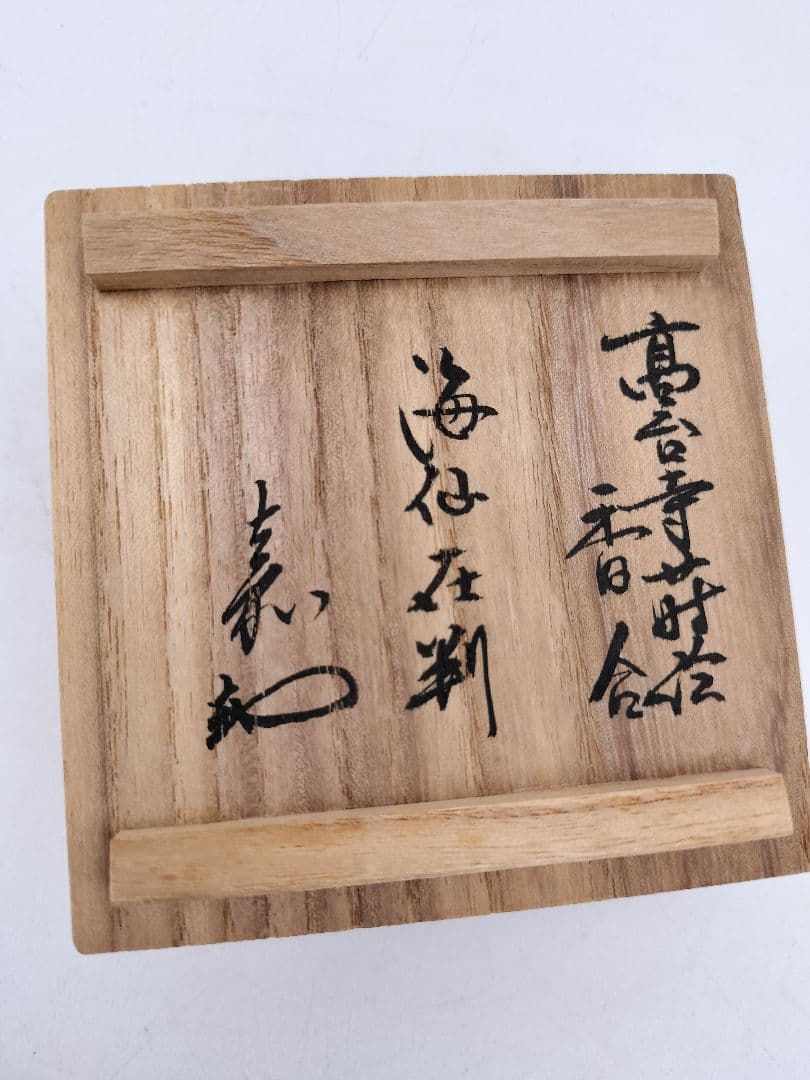 高台寺蒔絵
香合
海仙在判
嘉